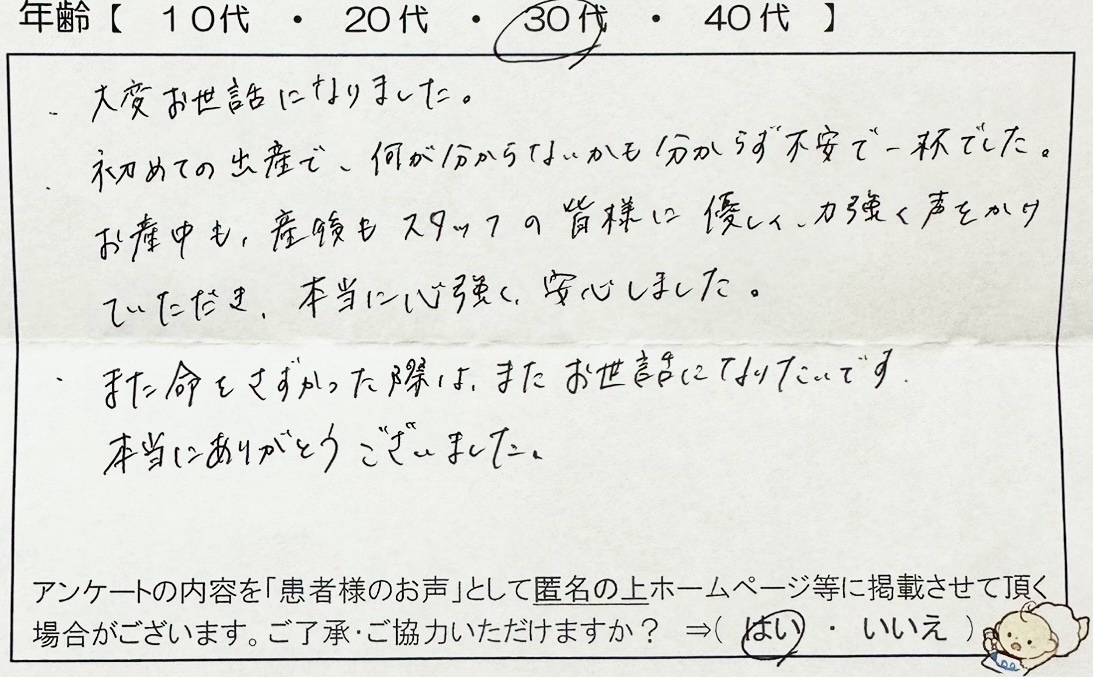 年齢【 10代 ・ 20代 ・ 30代 ・ 40代 】
大変お世話になりました。
初めての出産で、何が分からないかも分からず不安で一杯でした。
お産中も、産後もスタッフの皆様に優しく、力強く声をかけ
ていただき、本当に心強く、安心しました。
また命をさずかった際は、またお世話になりたいです.
本当にありがとうございました。
アンケートの内容を「患者様のお声」として匿名の上ホームページ等に掲載させて頂く
場合がございます。ご了承・ご協力いただけますか？ ⇒( はい ・ いいえ )